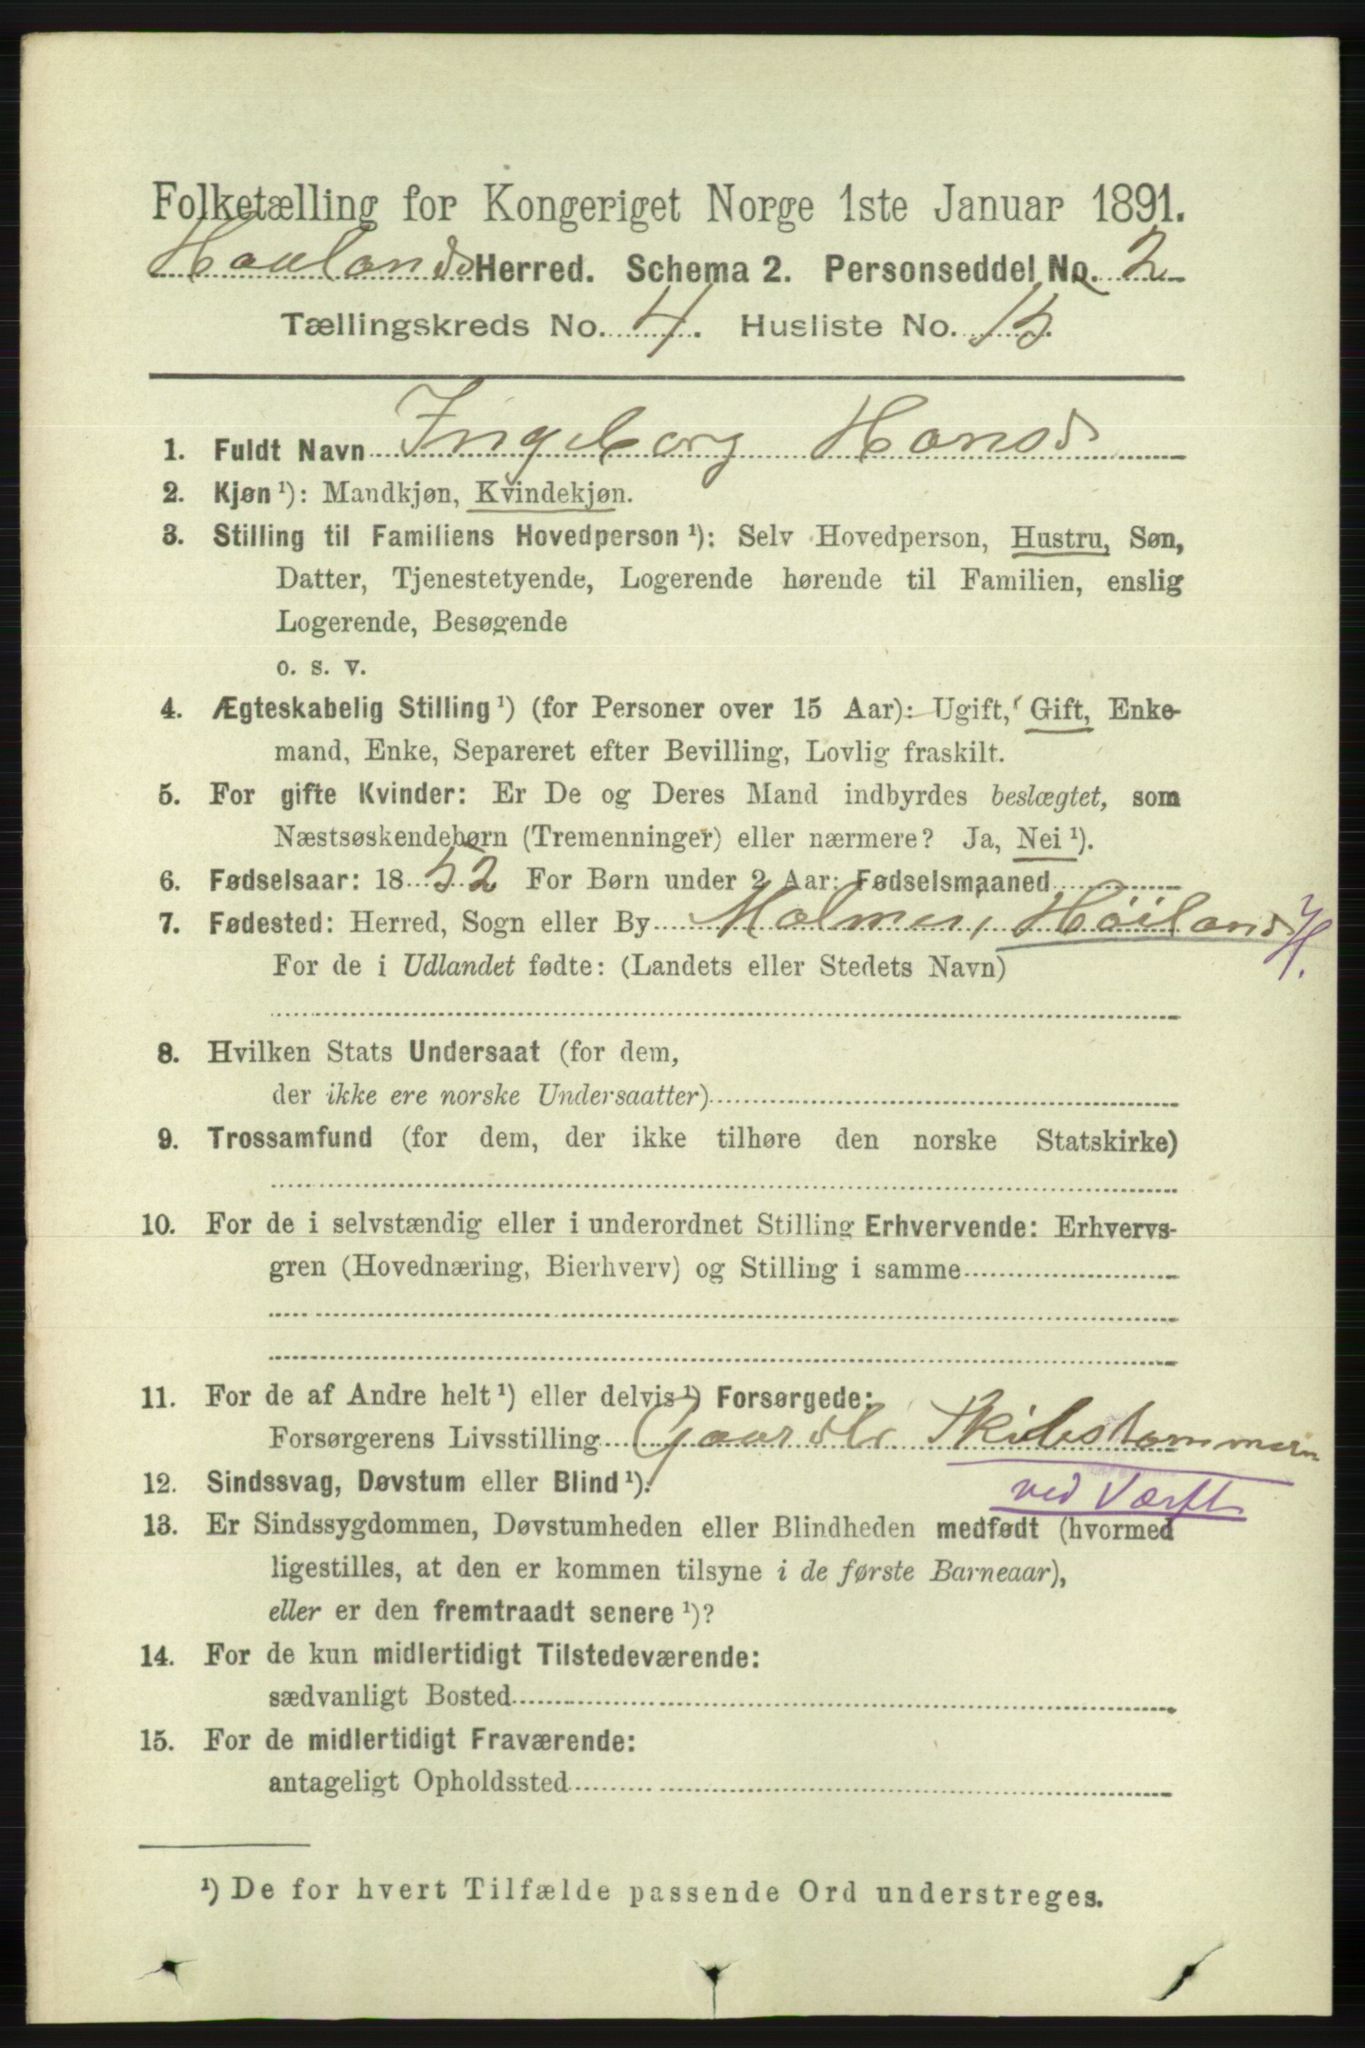 Folketælling for Kongeriget Norge 1ste Januar 1891.
Haalands Herred. Schema 2. Personseddel No. 2
Tællingskreds No. 4. Husliste No. 15.
1. Fuldt Navn Ingeborg Hansd
2. Kjøn¹): Mandkjøn, Kvindekjøn.
3. Stilling til Familiens Hovedperson¹): Selv Hovedperson, Hustru, Søn,
Datter, Tjenestetyende, Logerende hørende til Familien, enslig
Logerende, Besøgende
o. s. v.
4. Ægteskabelig Stilling¹) (for Personer over 15 Aar): Ugift, Gift, Enke-
mand, Enke, Separeret efter Bevilling, Lovlig fraskilt.
5. For gifte Kvinder: Er De og Deres Mand indbyrdes beslægtet, som
Næstsøskendebørn (Tremenninger) eller nærmere? Ja, Nei¹).
6. Fødselsaar: 1852 For Børn under 2 Aar: Fødselsmaaned
7. Fødested: Herred, Sogn eller By Malmei, Höilands H.
For de i Udlandet fødte: (Landets eller Stedets Navn)
8. Hvilken Stats Undersaat (for dem,
der ikke ere norske Undersaatter)
9. Trossamfund (for dem, der ikke tilhøre den norske Statskirke)
10. For de i selvstændig eller i underordnet Stilling Erhvervende: Erhvervs-
gren (Hovednæring, Bierhverv) og Stilling i samme
11. For de af Andre helt¹) eller delvis¹) Forsørgede:
Forsørgerens Livsstilling Gaardbr Skibstømmerm
ved Værft
12. Sindssvag, Døvstum eller Blind¹).
13. Er Sindssygdommen, Døvstumheden eller Blindheden medfødt (hvormed
ligestilles, at den er kommen tilsyne i de første Barneaar),
eller er den fremtraadt senere¹)?
14. For de kun midlertidigt Tilstedeværende:
sædvanligt Bosted
15. For de midlertidigt Fraværende:
antageligt Opholdssted
¹) De for hvert Tilfælde passende Ord understreges.